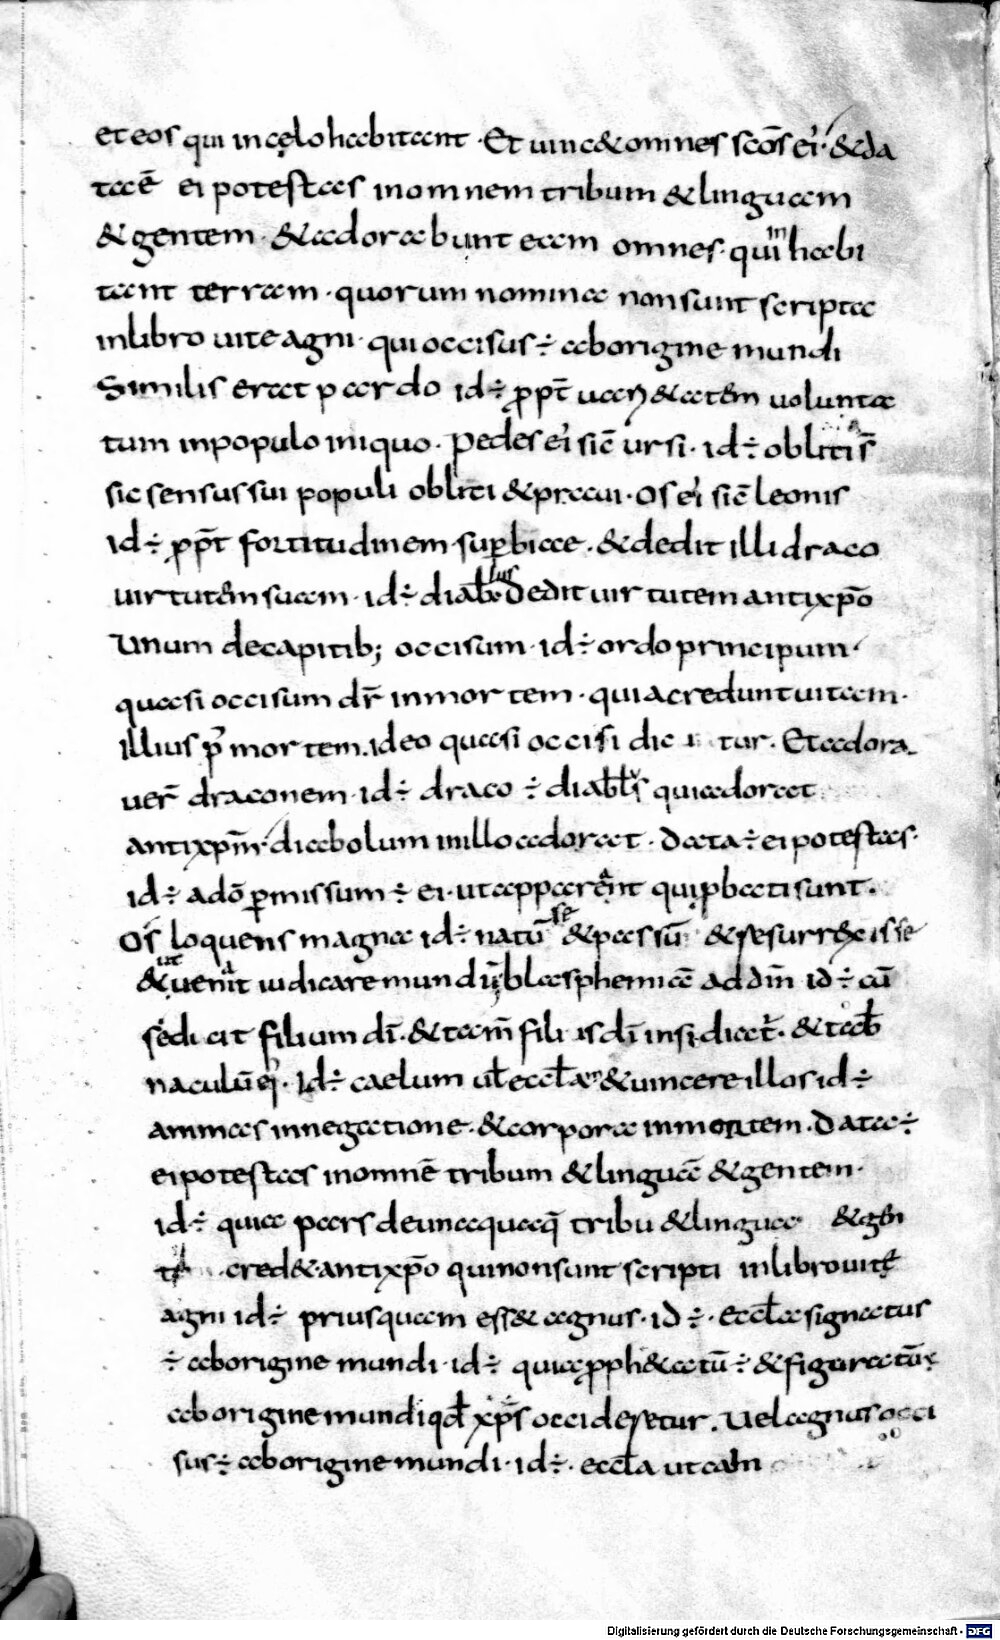 et eos qui in cęlo habitant · Et uinc& omnes scōs ei' · & da
ta ē ei potestas in omnem tribum & linguam
& gentem · & adorabunt eam omnes · qui in habi
tant terram · quorum nomina non sunt scripta
in libro uite agni · qui occisus ÷ ab origine mundi
Similis erat pardo id ÷ ꝓpt̄ uari&atem uolunta
tum in populo iniquo · pedes ei' sic̄ ursi · id ÷ obliti s̄
sic sensus sui populi obliti & praui · Os ei' sic̄ leonis
id ÷ ꝓpt̄ fortitudinem suꝑbiae · & dedit illi draco
uirtutem suam · id ÷ diabolus dedit uirtutem antixp̄o
Unum de capitib; occisum · id ÷ ordo principum
quasi occisum dr̄ in mortem · quia credunt uitam
illius p' mortem · ideo quasi occisi dic tur · Et adora
uer̄ draconem · id ÷ draco ÷ diabl's qui adorat
antixp̄m · diabolum in illo adorat · Data ÷ ei potestas ·
id ÷ adō ꝑmissum ÷ ei · ut apparent qui ꝓbati sunt ·
Os loquens magna id ÷ natū se & passū & resurr&isse
& ut uenit iudicare mundū · blasphemia ē ad dm̄ id ÷ cū
se dicit filium dī · & tam̄ filiis dī insidiat' · & tab̄
naculū ei' · Id ÷ caelum ul̄ eccl̄am & uincere illos id ÷
animas in negatione · & corpora in mortem · Data ÷
ei potestas in omnē tribum & linguā & gentem ·
id ÷ quia pars de unaquaq tribu & lingua & gen
te cred& antixp̄o qui non sunt scripti in libro uitę
agni id ÷ priusquam ess& agnus · id ÷ · eccl̄a signatus
÷ ab origine mundi · id ÷ quia ꝓph&atū ÷ & figuratū ÷
ab origine mundi qd̄ xp̄s occideretur · Uel agnus occi
sus ÷ ab origine mundi · id ÷ · eccl̄a ut
Digitalisierung gefördert durch die Deutsche Forschungsgemeinschaft - DFG